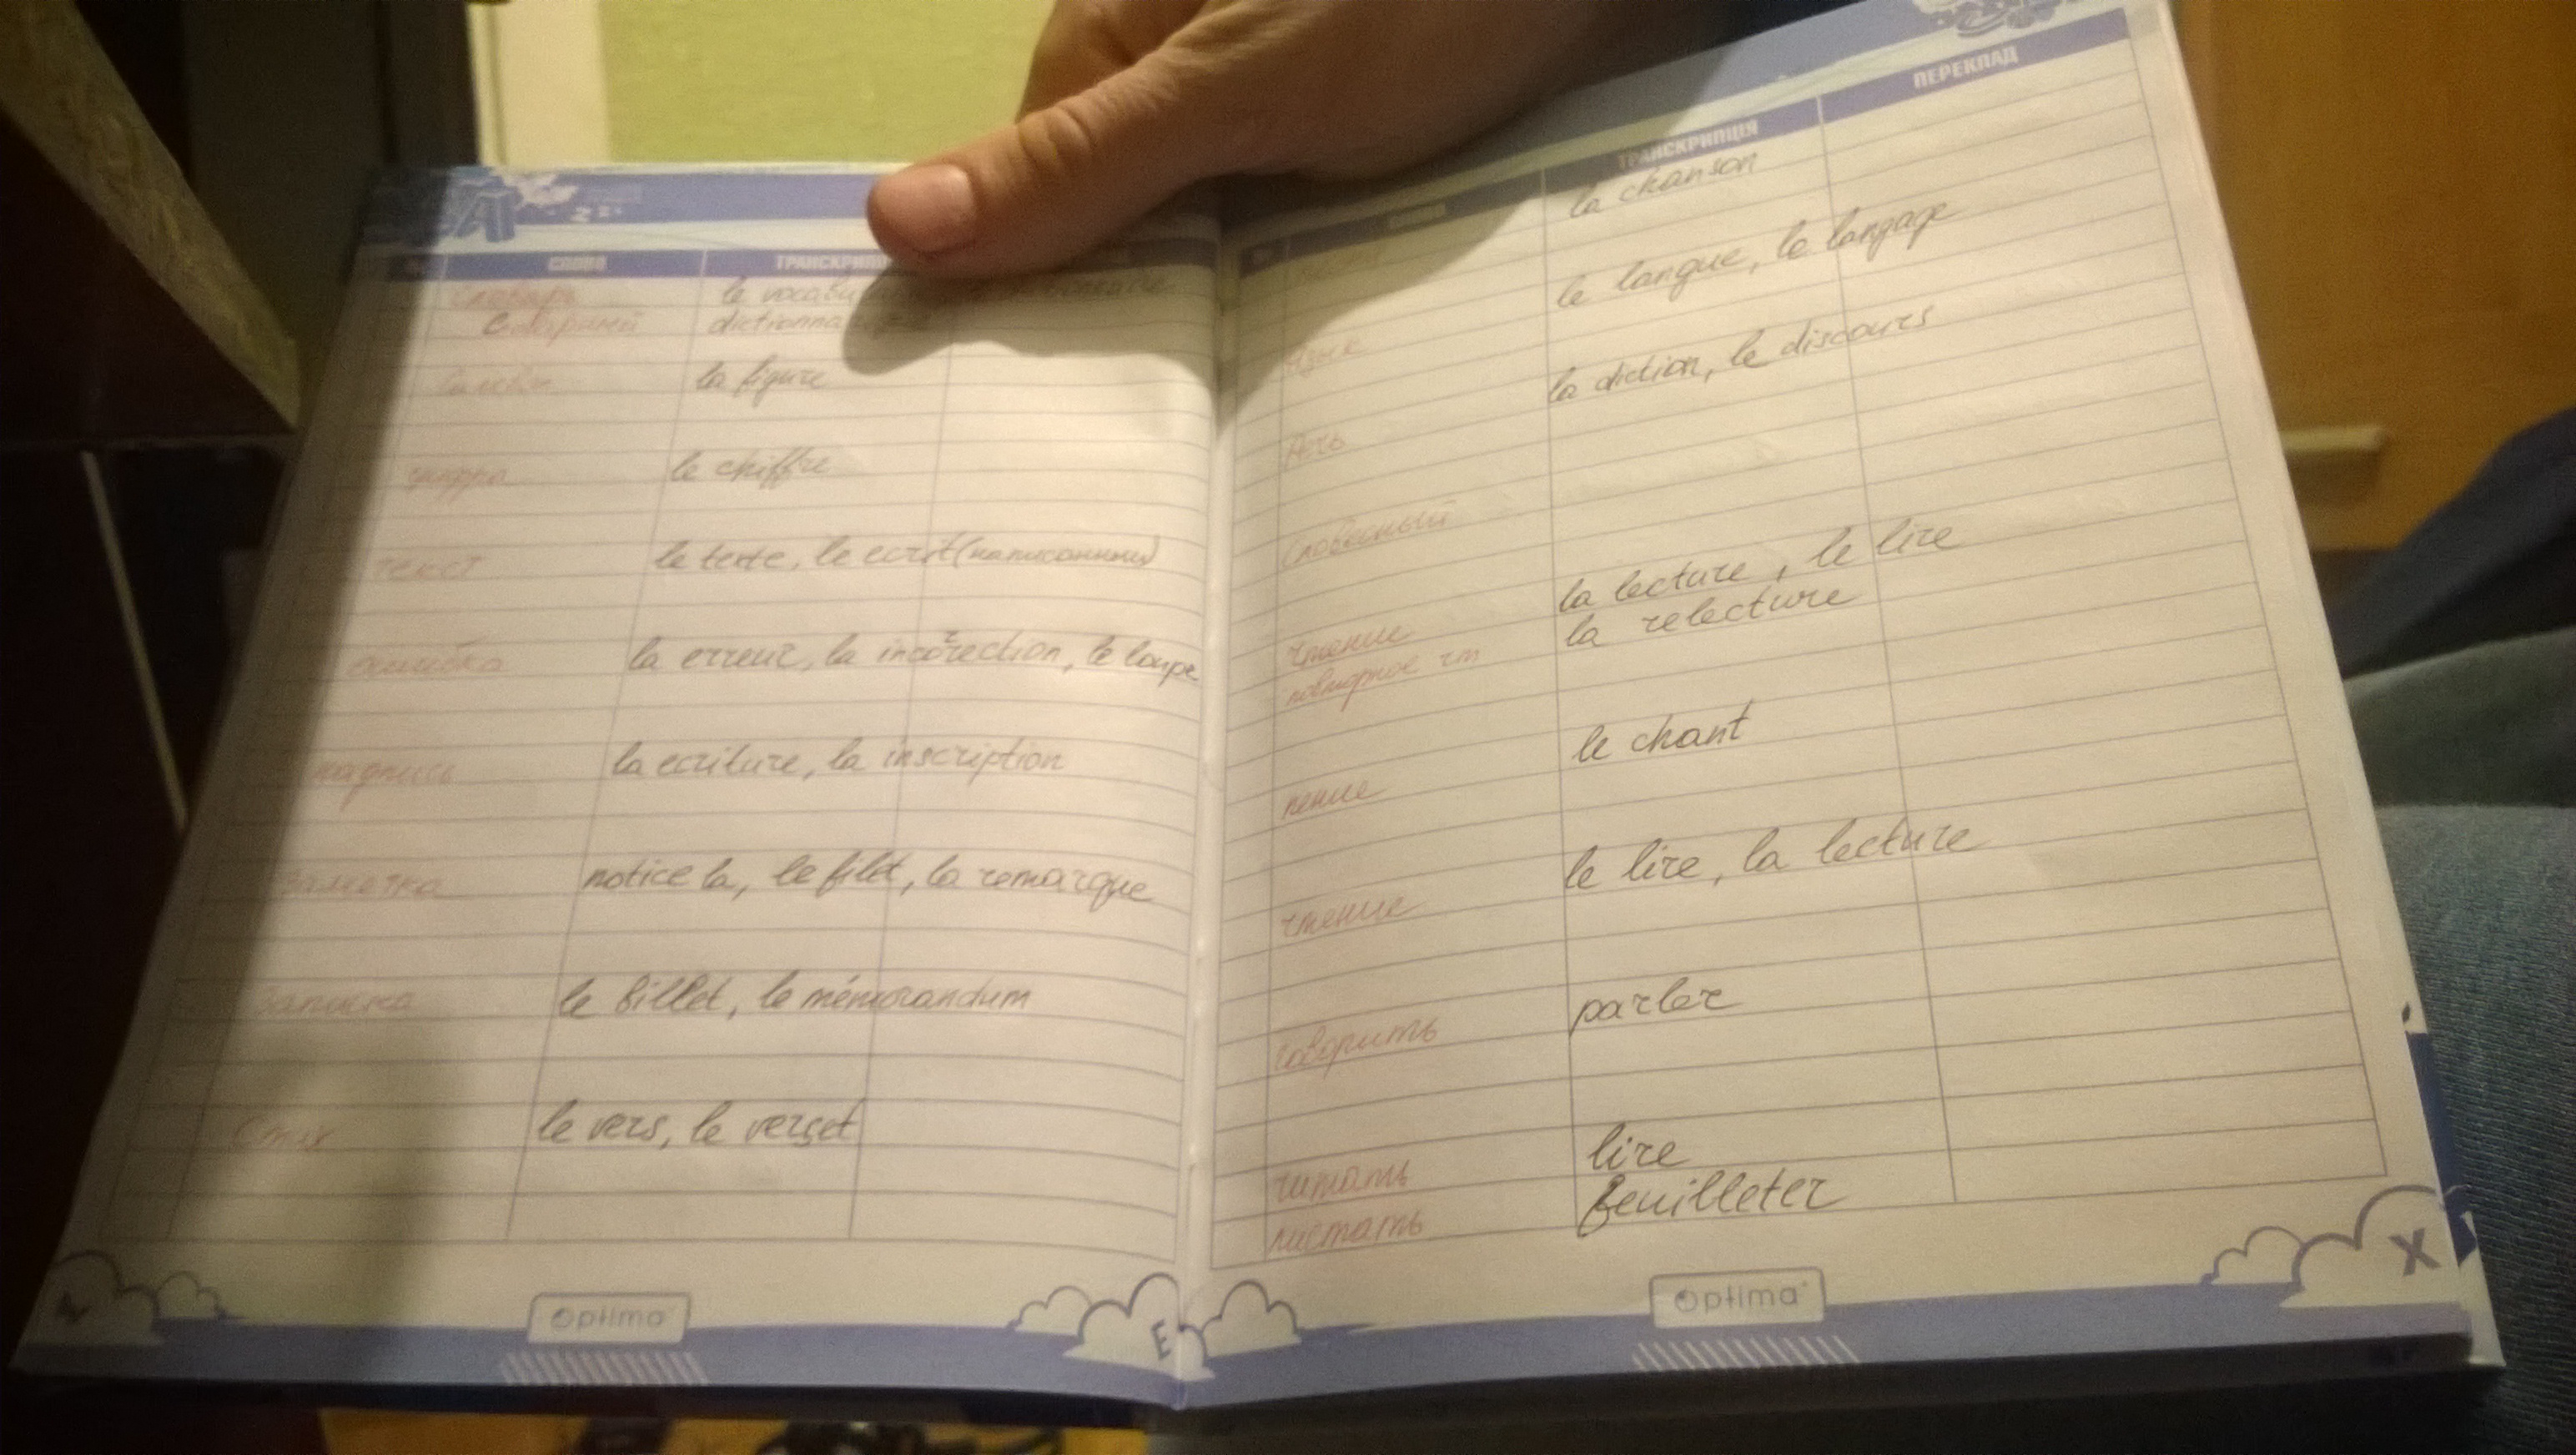 СЛОВО ТРАНСКРИП
словарь le vocabu
старинный dictionna
символ la figure
цифра le chiffre
текст le texte, le ecrit (написанный)
ошибка la erreur, la incorrection, le loupe
надпись la ecriture, la inscription
заметка notice la, le filet, la remarque
записка le billet, le mémorandum
Стих le vers, le verset
Optima
E
ТРАНСКРИПЦІЯ ПЕРЕКЛАД
la chanson
язык le langue, le langage
речь la diction, le discours
словесный
чтение la lecture, le lire
повторное чт la relecture
пение le chant
чтение le lire, la lecture
говорить parler
читать lire
листать feuilleter
Optima
Х